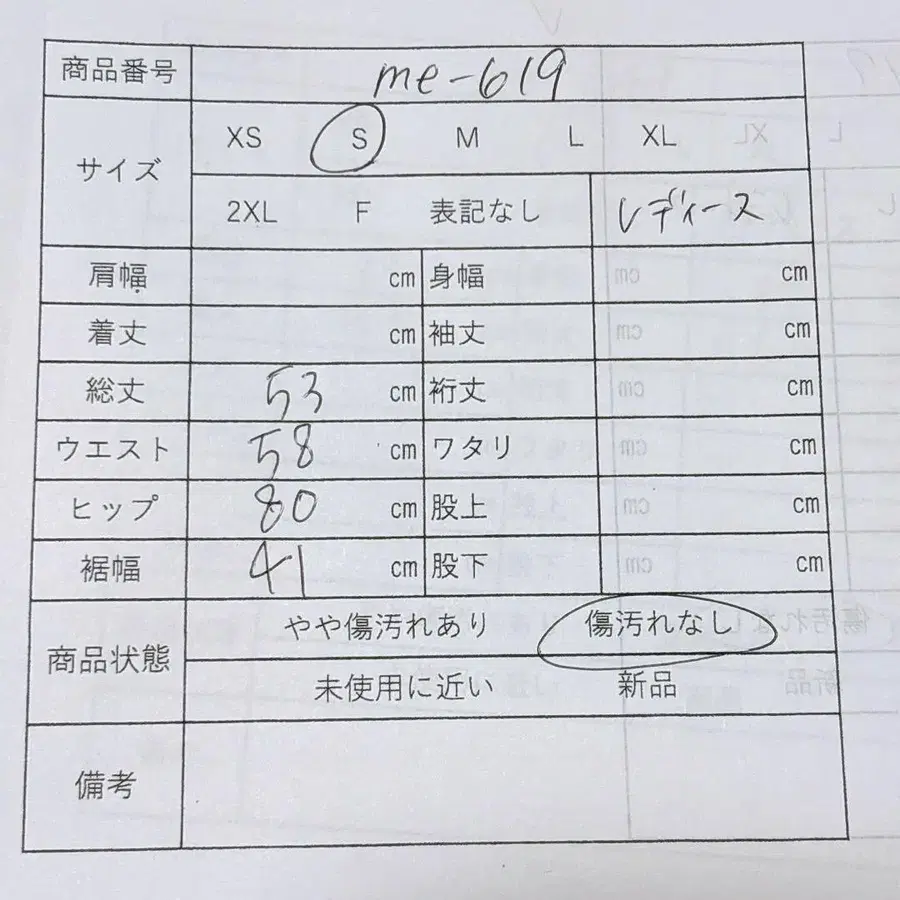 商品番号 me-619
サイズ XS S M L XL
2XL F 表記なし レディース
肩幅 cm 身幅 cm
着丈 cm 袖丈 cm
総丈 53 cm 裄丈 cm
ウエスト 58 cm ワタリ cm
ヒップ 80 cm 股上 cm
裾幅 41 cm 股下 cm
商品状態 やや傷汚れあり 傷汚れなし
未使用に近い 新品
備考